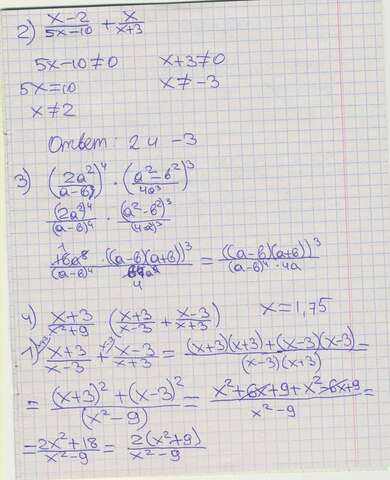 2) (x-2)/(5x-10) + x/(x+3)
5x-10≠0 x+3≠0
5x=10 x≠-3
x≠2
Ответ: 2 и -3
3) (2a²/(a-в))⁴ · ((a²-в²)/4a³)³
(2a²)⁴/(a-в)⁴ · (a²-в²)³/(4a³)³
((a-в)(a+в))³ = ((a-в)(a+в))³/((a-в)⁴·4a)
4) (x+3)/(x²+9) · ((x+3)/(x-3) + (x-3)/(x+3)) x=1,75
1) (x+3)/(x-3) + (x-3)/(x+3) = ((x+3)(x+3)+(x-3)(x-3))/((x-3)(x+3)) =
= ((x+3)²+(x-3)²)/(x²-9) = (x²+6x+9+x²-6x+9)/(x²-9) =
= (2x²+18)/(x²-9) = 2(x²+9)/(x²-9)